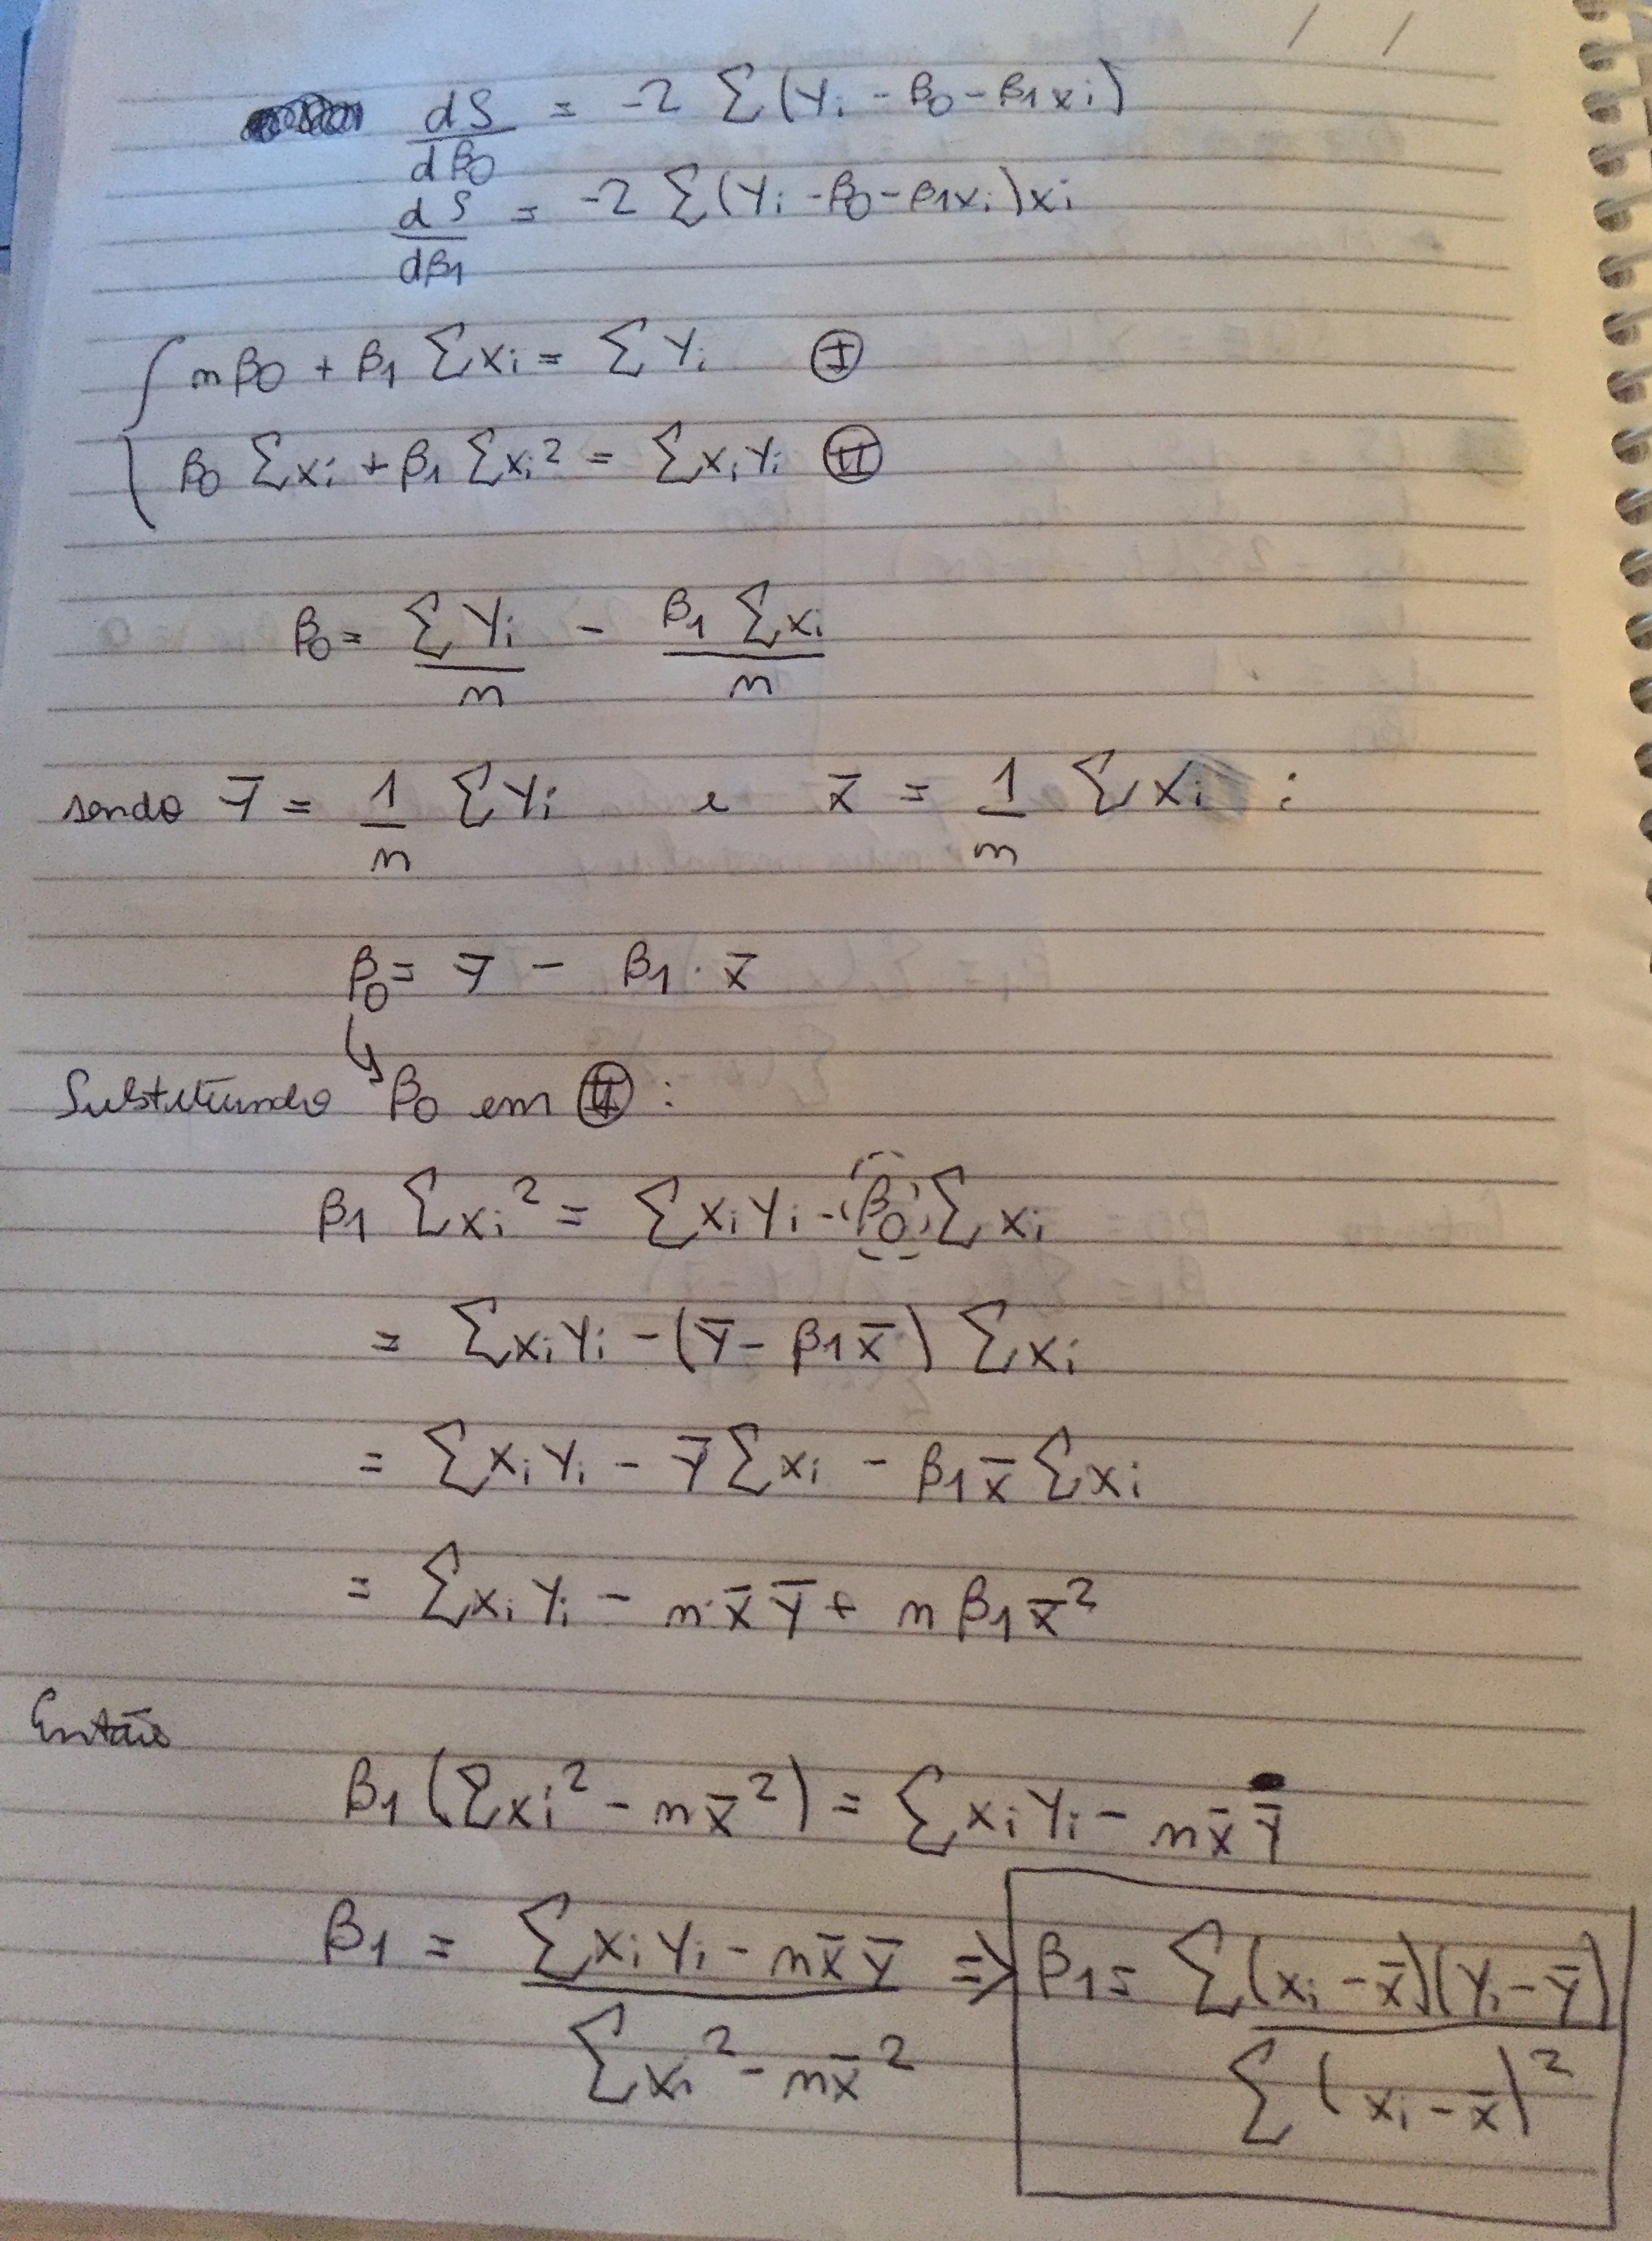 dS/dβ0 = -2 Σ(Yi - β0 - β1xi)
dS/dβ1 = -2 Σ(Yi - β0 - β1xi)xi
{ nβ0 + β1 Σxi = Σ Yi (I)
β0 Σxi + β1 Σxi² = Σxi Yi (II)
β0 = Σ Yi / n - β1 Σxi / n
sendo Ȳ = 1/n ΣYi e x̄ = 1/n Σxi :
β0 = Ȳ - β1 . x̄
Substituindo β0 em (II) :
β1 Σxi² = ΣxiYi - β0 Σxi
= ΣxiYi - (Ȳ - β1x̄) Σxi
= ΣxiYi - ȲΣxi - β1x̄ Σxi
= ΣxiYi - n x̄ Ȳ + n β1 x̄²
Então
β1 (Σxi² - nx̄²) = ΣxiYi - nx̄Ȳ
β1 = (ΣxiYi - nx̄Ȳ) / (Σxi² - nx̄²) => β1 = Σ(xi - x̄)(Yi - Ȳ) / Σ(xi - x̄)²